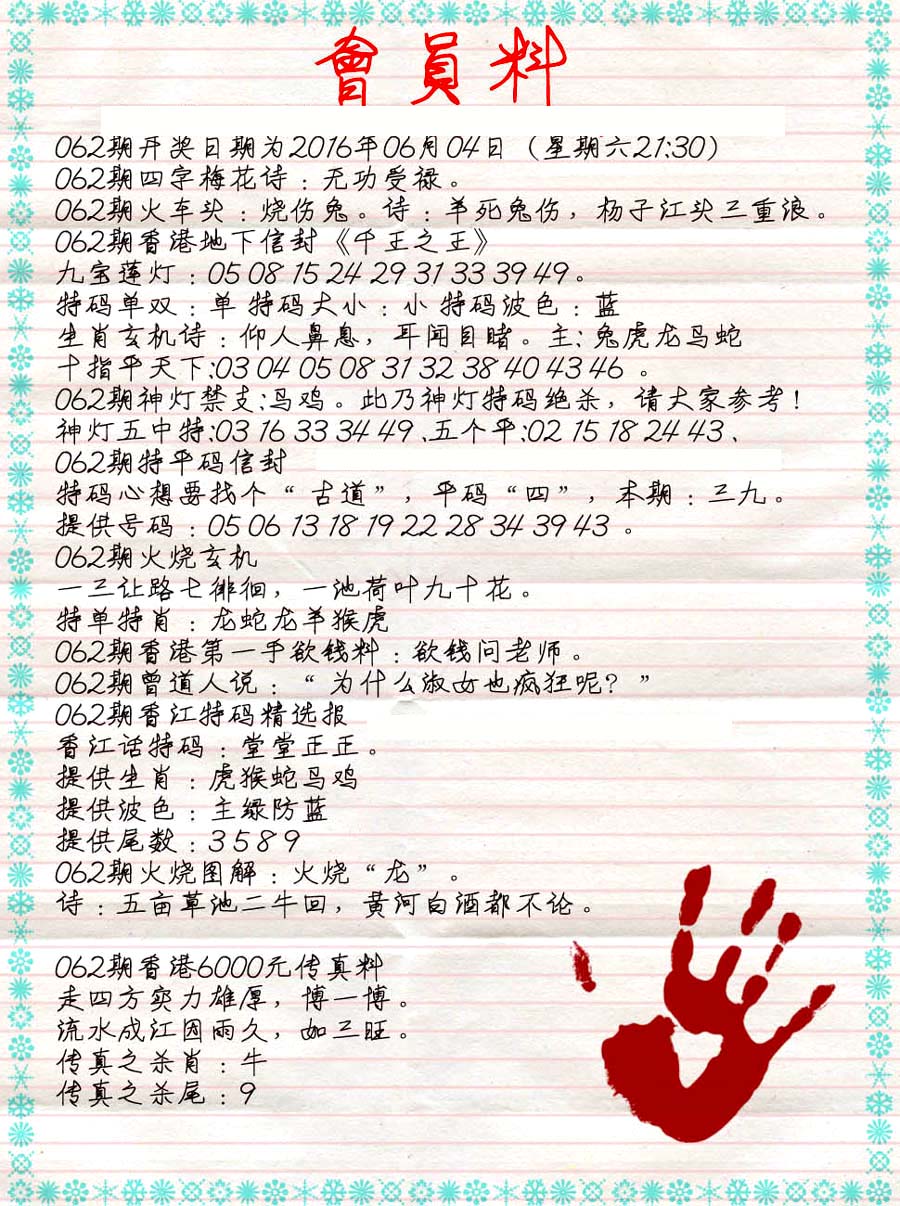 會員料
062期开奖日期为2016年06月04日（星期六21:30）
062期四字梅花诗：无功受禄。
062期火车头：烧伤兔。诗：羊死兔伤，杨子江头三重浪。
062期香港地下信封《千王之王》
九宝莲灯：05 08 15 24 29 31 33 39 49。
特码单双：单 特码大小：小 特码波色：蓝
生肖玄机诗：仰人鼻息，耳闻目睹。主：兔虎龙马蛇
十指平天下:03 04 05 08 31 32 38 40 43 46 。
062期神灯禁支:马鸡。此乃神灯特码绝杀，请大家参考！
神灯五中特:03 16 33 34 49 、五个平:02 15 18 24 43 、
062期特平码信封
特码心想要找个“ 古道”，平码“四”，本期：三九。
提供号码：05 06 13 18 19 22 28 34 39 43 。
062期火烧玄机
一三让路七徘徊，一池荷叶九十花。
特单特肖：龙蛇龙羊猴虎
062期香港第一手欲钱料：欲钱问老师。
062期曾道人说：“ 为什么淑女也疯狂呢？”
062期香江特码精选报
香江话特码：堂堂正正。
提供生肖：虎猴蛇马鸡
提供波色：主绿防蓝
提供尾数：3 5 8 9
062期火烧图解：火烧“龙”。
诗：五亩草池二牛回，黄河白酒都不论。
062期香港6000元传真料
走四方实力雄厚，博一博。
流水成江因雨久，如三旺。
传真之杀肖：牛
传真之杀尾：9